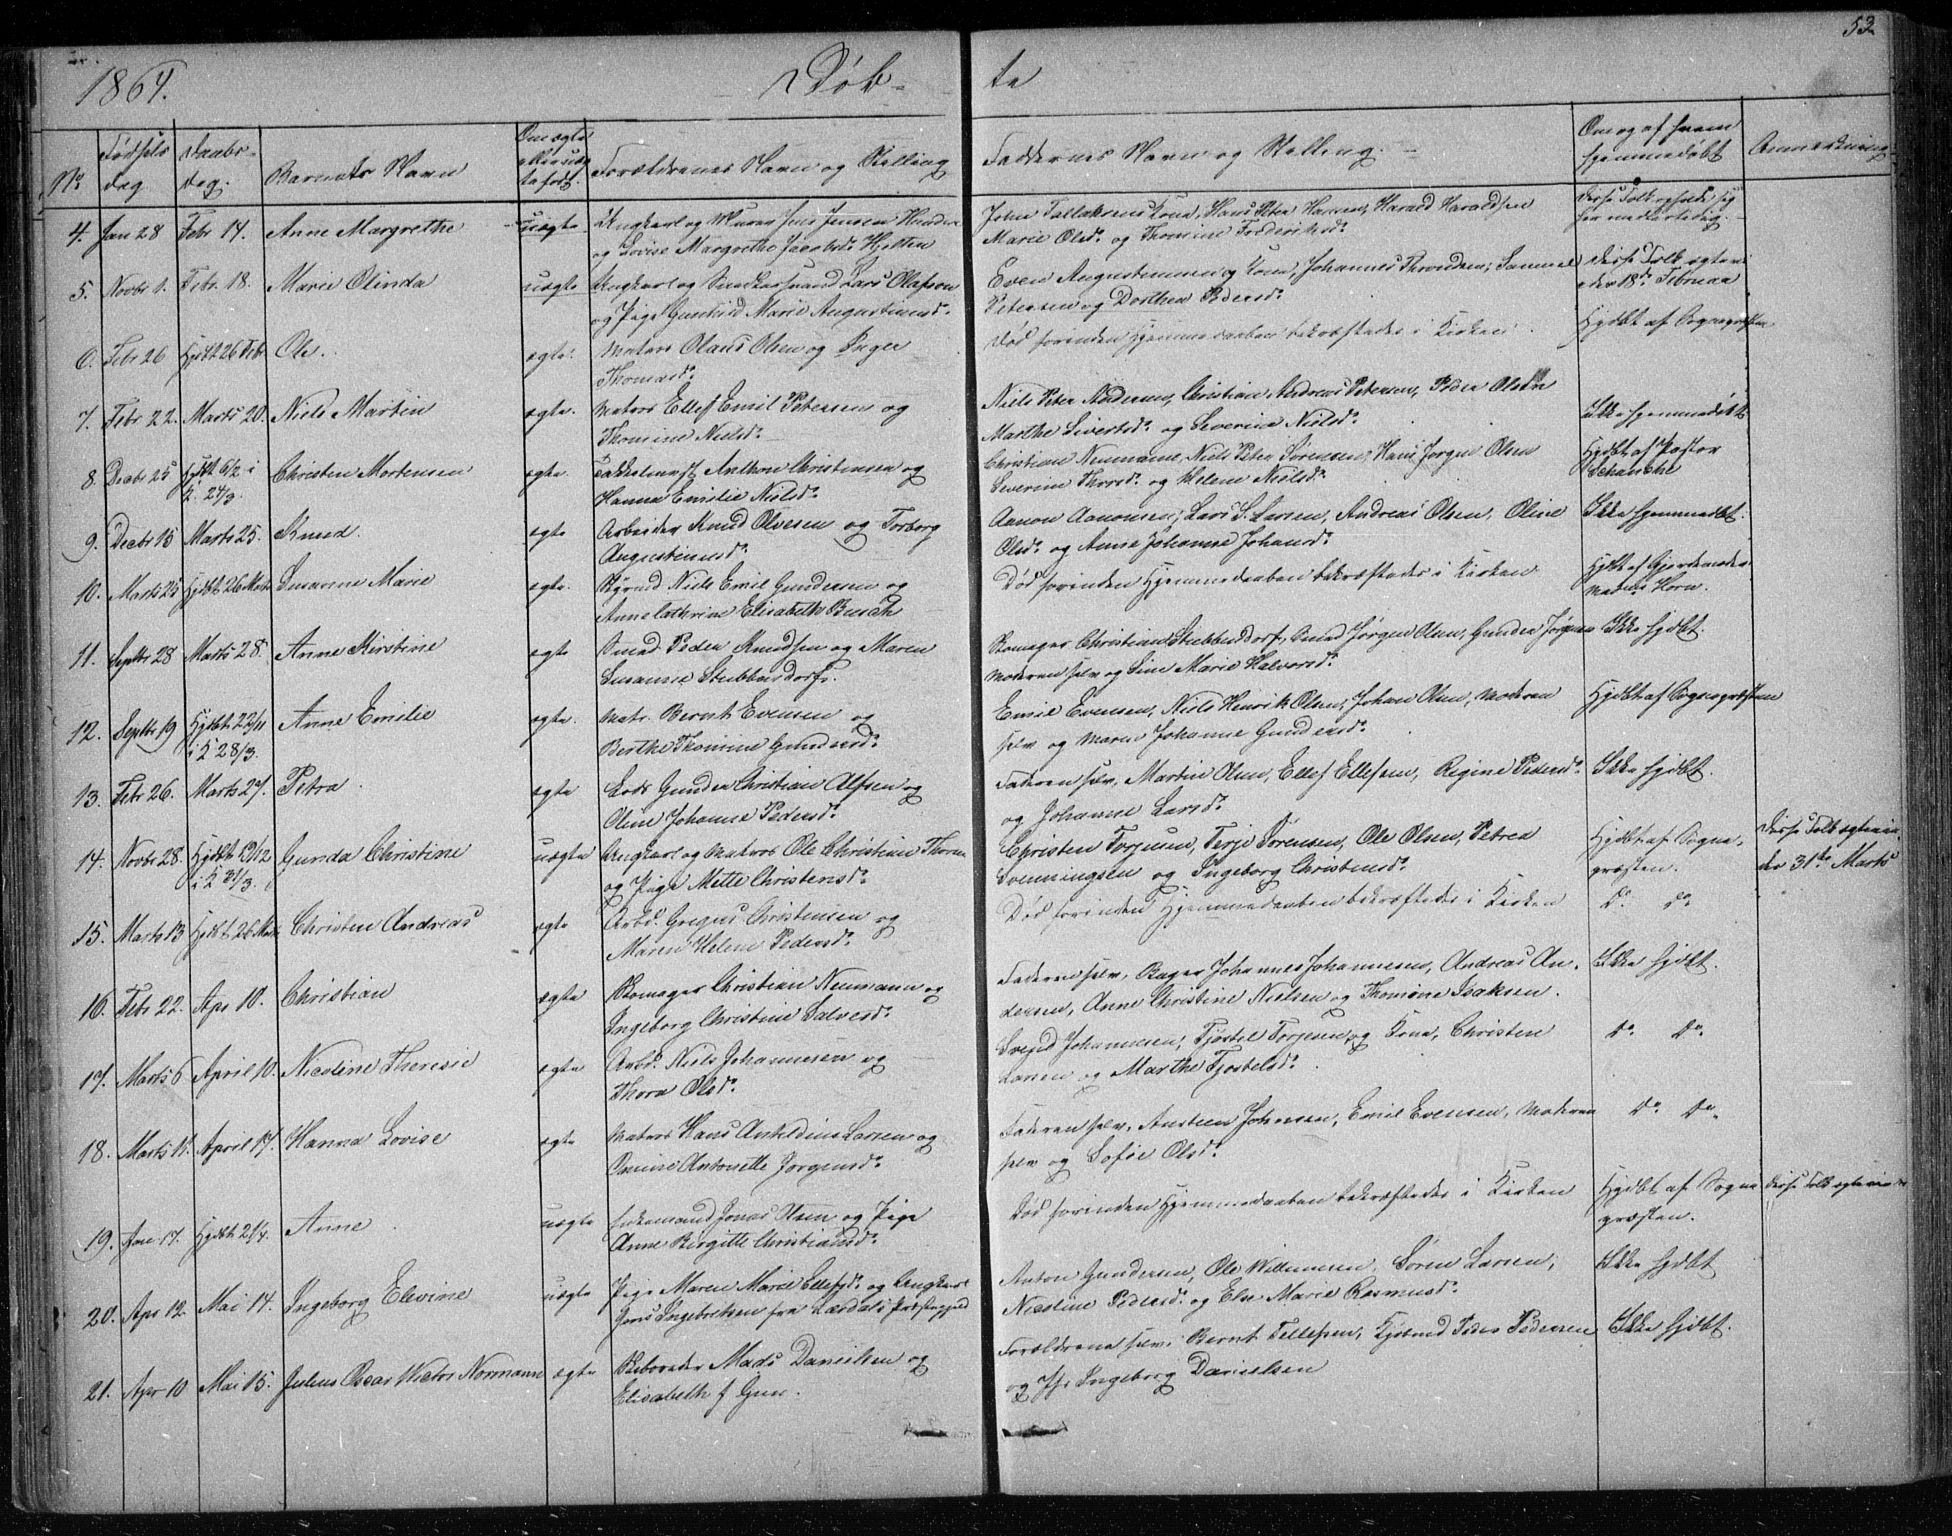 53
1864.
Døb-
te
No
Fødsels dag
Daabs- dag.
Barnets Navn
Om ægte eller uæg te født.
Forældrenes Navn og Stilling
Faddernes Navn og Stilling.
Om og af hvem hjemmedøbt
Anmerkning
4. Jan 28 Febr 14. Anne Margrethe uægte Ungkarl og Murer Jens Jensen
og Lovise Margrethe Jacobsd. Hjelten
John Tallaksens Kone, Hans Peter Hansen, Harald Haraldsen
Marie Olsd. og Thomine Frederiksd.
disse Folk opholde sig
her midlertidig.
5. Novbr 1. Febr. 18. Marie Olinda uægte Ungkarl og Lars Olafson
og Pige Gunhild Marie Augustinusd.
Even Augustinussen og Kone, Johannes Throndsen, Samuel
Petersen og Dorthea Pedersd.
disse Folk ægtevi
edes 18de Februar
6. Febr 26 Hjdbt 26 Febr Ole. ægte. Matros Olaus Olsen og Inger
Thomasd.
Død forinden Hjemmedaaben bekræftedes i Kirken.
Hjdbt af Sognepræsten
7. Febr 22. Marts 20. Niels Martin ægte. Matros Ellef Emil Petersen og
Thomine Nielsd.
Niels Peter Andersen, Christian Andreas Petersen, Peder Olsen
Marthe Sivertsd. og Severine Nielsd.
Ikke hjemmedøbt
8. Decbr 25 Hjdbt 6/2 i K. 24/3. Christen Mortensen ægte Anthon Christensen og
Hanna Emilie Nielsd.
Christian Neumann, Niels Peter Sørensen, Hans Jørgen Olsen
Severine Thorsd. og Helene Nielsd.
Hjdbt af Pastor
Schanche
9. Decbr 15 Marts 25. Knud. ægte Arbeider Knud Olvesen og Torborg
Augustinusd.
Aanon Aanonsen, Lars S. Larsen, Andreas Olsen, Oline
Olsd. og Anne Johanne Johansd.
Ikke hjemmedbt.
10. Marts 25 Hjdbt 26 Marts Susanne Marie ægte. Niels Emil Gundersen og
Anne Cathrine Elisabeth Busch
Død forinden Hjemmedaaben bekræftedes i Kirken
Hjdbt af Gjordemoder
Madam Horn.
11. Septbr 28 Marts 28. Anne Kirstine ægte Smed Peder Knudsen og Maren
Susanne Stubbendorf.
Romager Christian Stubbendorf, Smed Jørgen Olsen, Gunder Jørgensen
Moderen selv og Sine Marie Halvorsd.
Ikke hjdbt.
12. Septbr 19 Hjdbt 22/11 i K 28/3. Anne Emilie ægte. Matr. Bernt Evensen og
Berthe Thomine Gundersd.
Emil Evensen, Niels Henrik Olsen, Johan Olsen, Moderen
selv og Maren Johanne Gundersd.
Hjdbt af Sognepræsten
13. Febr 26. Marts 27. Petra. ægte Lods Gunder Christian Alfsen og
Oline Johanne Pedersd.
Faderen selv, Martin Olsen, Ellef Ellefsen, Regine Pedersd.
og Johanne Larsd.
Ikke hjdbt.
14. Novbr 28. Hjdbt 19/12 i K 31/3. Gunda Christine uægte Ungkarl og Matros Ole Christian Thorsen
og Pige Mette Christensd.
Christen Torjusen, Terje Sørensen, Ole Olsen, Petrea
Svenningsen og Ingeborg Christensd.
Hjdbt af Sogne-
præsten.
disse Folk ægtevies
den 31te Marts
15. Marts 13 Hjdbt 26 Marts Christen Andreas ægte Arbd. Gregers Christensen og
Maren Helene Pedersd.
Død forinden Hjemmedaaben bekræftedes i Kirken
Do. Do.
16. Febr 22. Apr 10. Christian ægte Romager Christian Neumann og
Ingeborg Christine Salvesd.
Faderen selv, Bager Johannes Johannesen, Andreas An-
dersen, Anne Christine Nielsen og Thomine Isaksen.
Ikke hjdbt.
17. Marts 6 April 10. Nicoline Theresie ægte Arbd. Niels Johannesen og
Thora Olsd.
Johannesen, Fjøstel Torjesen og Kone, Christen
Larsen og Marthe Fjøstelsd.
Do. Do.
18. Marts 11. April 17. Hanna Lovise ægte Matros Hans Larsen og
Antonette Jørgensd.
Faderen selv, Johnsen, Emil Evensen, Moderen
selv og Sofie Olsd.
Do. Do.
19. Jan 17. Hjdbt 21/4. Anne uægte Enkemand Jonas Olsen og Pige
Anne Birgitte Christiansd.
Død forinden Hjemmedaaben bekræftedes i Kirken
Hjdbt af Sogne
præsten.
disse Folk ægtevies
20. Apr 12. Mai 14. Ingeborg Elevine uægte Pige Maren Marie Ellefsd. og Ungkarl
Jens Ingebretsen fra Lærdals Præstegjeld
Anton Gundersen, Ole Willumsen, Søren Larsen,
Nicoline Pedersd. og Else Marie Rasmusd.
Ikke hjdbt
21. Apr 10 Mai 15. Julius Oscar Victor Normann ægte Mads Danielsen og
Elisabeth f Gun.
Forældrene selv, Bernt Tellefsen, Kjøbmd Peder Pedersen
og Jfr Ingeborg Danielsen
Ikke hjdbt.